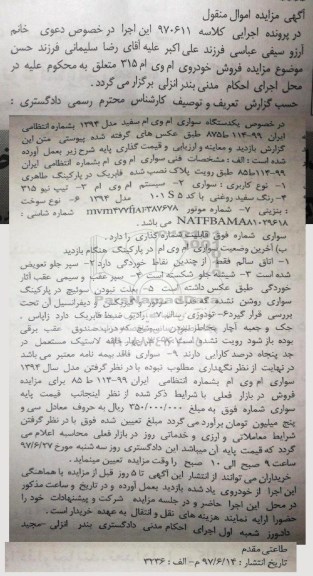 آگهی مزایده اموال منقول
در پرونده اجرایی کلاسه ۹۷۰۶۱۱ این اجرا در خصوص دعوی خانم
آرزو سیفی عباسی فرزند علی اکبر علیه آقای رضا سلیمانی فرزند حسن
موضوع مزایده فروش خودروی ام وی ام ۳۱۵ متعلق به محکوم علیه در
محل اجرای احکام مدنی بندر انزلی برگزار می گردد.
حسب گزارش تعریف و توصیف کارشناس محترم رسمی دادگستری :
در خصوص یکدستگاه سواری ام وی ام سفید مدل ۱۳۹۴ بشماره انتظامی
ایران ۹۹-۱۱۴ط۸۷۵ طبق عکس های گرفته شده پیوستی متن این
گزارش بازدید و معاینه و ارزیابی و قیمت گذاری پایه شرح زیر بعمل آورده
شده است : الف : مشخصات فنی سواری ام وی ام بشماره انتظامی ایران
۹۹-۱۱۴ط۸۵ طبق رویت پلاک نصب شده فابریک در پارکینگ طاهری
۱- نوع کاربری : سواری ۲- سیستم ام وی ام ۳- تیپ نیو ۳۱۵
۴- رنگ سفید روغنی با کد ۱۰۱ S ۵ مدل ۱۳۹۴ ۶- نوع سوخت
: بنزینی ۷- شماره موتور mvm۴۷۷fj شماره شاسی :
NATFBAMA می باشد.
سواری شماره فوق قابلیت شماره گذاری را دارد.
ب) آخرین وضعیت سواری ام وی ام در پارکینگ هنگام بازدید
۱- اتاق سالم فقط از چندین نقاط خوردگی دارد ۲- سپر جلو تعویض
شده است ۳- شیشه جلو شکسته است ۴- سپر عقب و سینی عقب آثار
خوردگی طبق عکس داشته است ۵- بعلت نبودن سوئیچ در پارکینگ
سواری روشن نشده که صدای موتور و گیربکس و دیفرانسیل آن تحت
بررسی قرار گیرد ۶- تودوزی سالم ۷- رادیو ضبط فابریک دارد زاپاس .
جک و جعبه آچار بخاطر نبودن سوئیچ که درب صندوق عقب برقی
بوده باز شود رویت نشده است ۸- چهار چهار حلقه لاستیک مستعمل در
حد پنجاه درصد کارایی دارند ۹- سواری فاقد بیمه نامه معتبر می باشد
در نهایت از نظر نگهداری مطلوب نبوده با در نظر گرفتن مدل سال ۱۳۹۴
سواری ام وی ام بشماره انتظامی ایران ۹۹-۱۱۴ ط ۸۵ برای مزایده
فروش در بازار فعلی با شرایط ذکر شده از نظر اینجانب قیمت پایه
سواری شماره فوق به مبلغ ۳۵۰/۰۰۰/۰۰۰ ریال به حروف معادل سی و
پنج میلیون تومان برآورد می گردد مبلغ تعیین شده فوق با در نظر گرفتن
شرایط معاملاتی و ارزی و خدماتی روز در بازار فعلی محاسبه اعلام می
گردد که قیمت پایه آن میباشد این دادگستری روز سه شنبه مورخ ۹۷/۶/۲۷
ساعت ۹ صبح الی ۱۰ صبح را وقت مزایده تعیین مینماید.
خریداران می توانند از انتشار این آگهی تا ۵ روز قبل از مزایده با هماهنگی
این اجرا از خودروی یاد شده بازدید بعمل آورده و در تاریخ و ساعت مذکور
در محل این اجرا حاضر و در جلسه مزایده شرکت و پیشنهادات خود را
حضورا ارایه نمایند هزینه های نقل و انتقال به عهده خریدار است.
دادورز شعبه اول اجرای احکام مدنی دادگستری بندر انزلی -مجید
طاعتی مقدم
تاریخ انتشار : ۹۷/۶/۱۴ م- الف : ۳۲۳۶